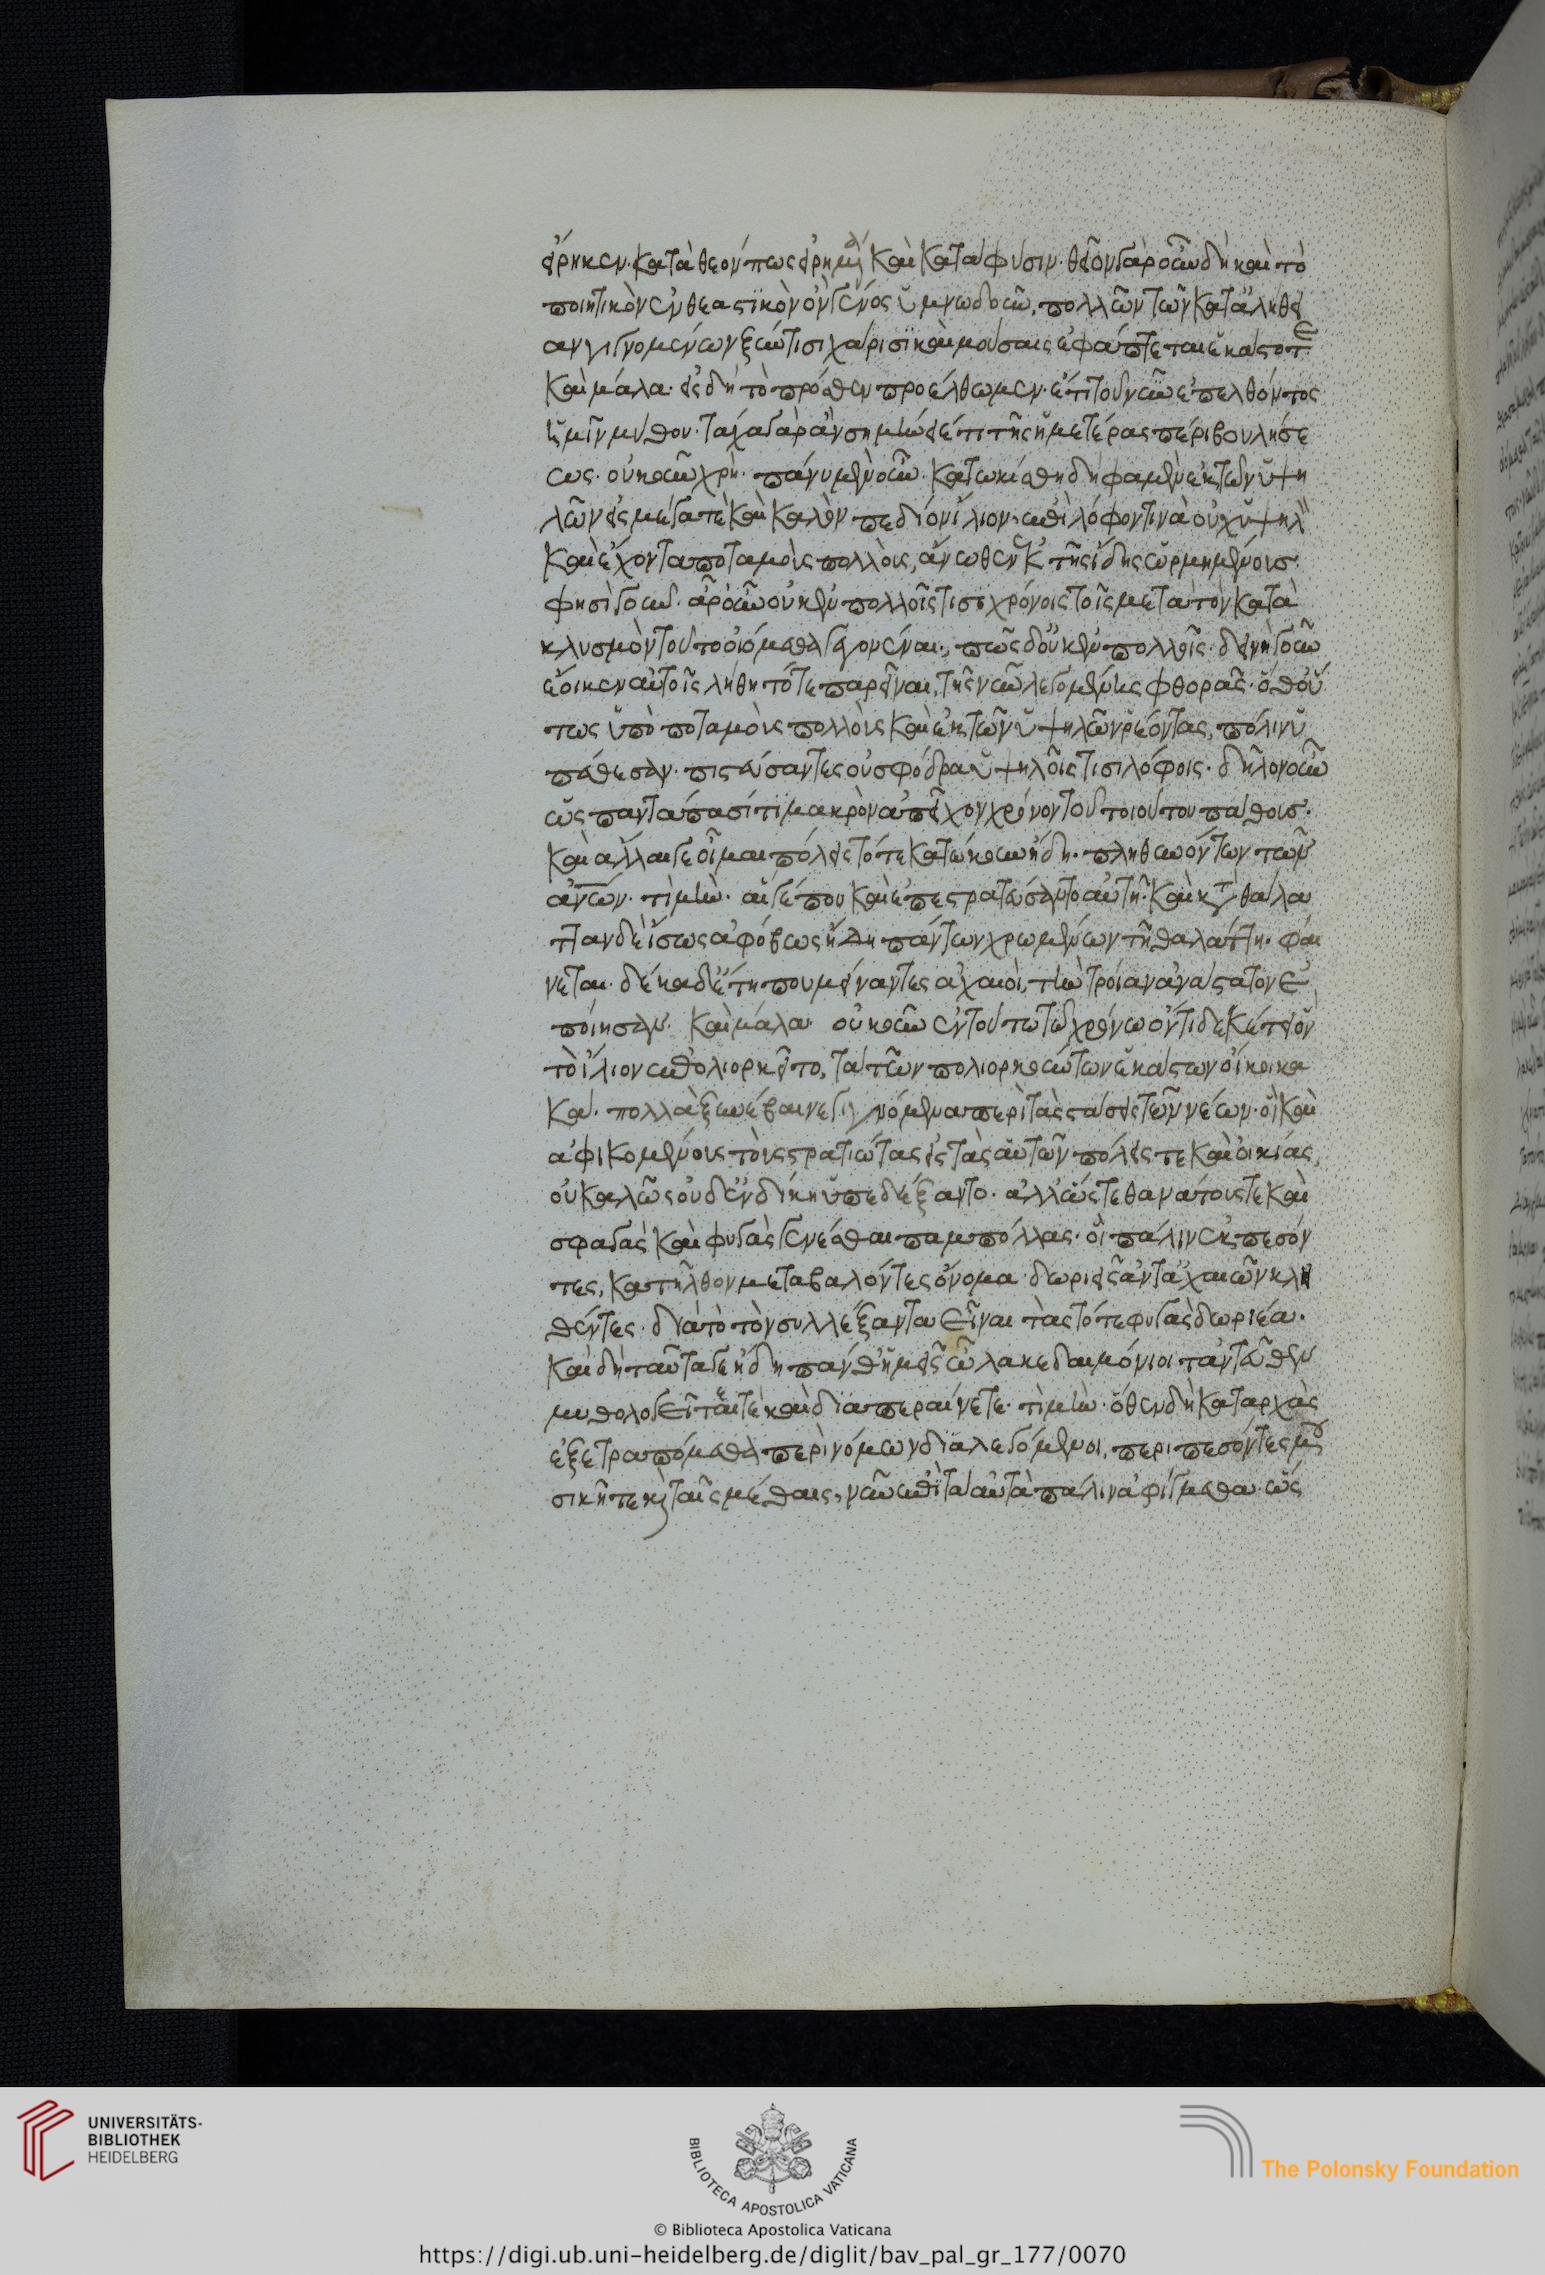 εἴρηκεν· κατὰ θεόν πως εἰρημένα καὶ κατὰ φύσιν· θεῖον γὰρ οὖν δὴ καὶ τὸ
ποιητικὸν ἐνθεαστικὸν ὂν γένος ὑμνωδοῦν, πολλῶν τῶν κατ' ἀλήθει
αν γιγνομένων ξύν τισι χάρισι καὶ μούσαις ἐφάπτεται ἑκάστοτε
καὶ μάλα· εἰς δὴ τὸ πρόσθεν προέλθωμεν· ἔτι τοῦ νῦν ἐπελθόντος
ἡμῖν μύθου· τάχα γὰρ ἂν σημήνειέ τι τῆς ἡμετέρας πέρι βουλήσε
ως· οὐκοῦν χρή· πάνυ μὲν οὖν· κατωκίσθη δή φαμεν ἐκ τῶν ὑψη
λῶν εἰς μέγα τὲ καὶ καλὸν πεδίον ἴλιον, ἐπὶ λόφον τινὰ οὐχ ὑψηλὸν
καὶ ἔχοντα ποταμοὺς πολλοὺς, ἄνωθεν ἐκ τῆς ἴδης ὡρμημένους·
φησὶ γοῦν· ἆρ' οὖν οὐκ ἐν πολλοῖς τισι χρόνοις τοῖς μετὰ τὸν κατα
κλυσμὸν τοῦτο οἰόμεθα γεγονέναι, πῶς δ' οὐκ ἐν πολλοῖς· δεινὴ γοῦν
ἔοικεν αὐτοῖς λήθη τότε παρεῖναι, τῆς νῦν λεγομένης φθορᾶς· ὅθ' οὕ
τως ὑπὸ ποταμοὺς πολλοὺς καὶ ἐκ τῶν ὑψηλῶν ῥέοντας, πόλιν ὑ
πέθεσαν· πιστεύσαντες οὐ σφόδρα ὑψηλοῖς τισι λόφοις· δῆλον οὖν
ὡς παντάπασί τι μακρὸν ἀπεῖχον χρόνον τοῦ τοιούτου πάθους·
καὶ ἄλλαι γε οἶμαι πόλεις τότε κατώκουν ἤδη· πληθυόντων τῶν
ἀνων· τί μήν· αἵ γέ που καὶ ἐπεστρατεύσαντο αὐτῆ· καὶ κατὰ θάλα
τταν δὲ ἴσως ἀφόβως ἤδη πάντων χρωμένων τῆ θαλάττη· φαί
νεται· δέκα δ' ἔτη που μείναντες ἀχαιοὶ, τὴν τροίαν ἀνάστατον ἐ
ποίησαν· καὶ μάλα· οὐκοῦν ἐν τούτω τῶ χρόνω ὄντι δεκέτει ὃν
τὸ ἴλιον ἐπολιορκεῖτο, τὰ τῶν πολιορκούντων ἑκάστων οἴκοι κα
κὰ· πολλὰ ξυνέβαινε γιγνόμενα περὶ τὰς στάσεις τῶν νέων· οἳ καὶ
ἀφικομένους τοὺς στρατιώτας εἰς τὰς αὑτῶν πόλεις τε καὶ οἰκίας,
οὐ καλῶς οὐδ' ἐν δίκη ὑπεδέξαντο· ἀλλ' ὥστε θανάτους τε καὶ
σφαγὰς καὶ φυγὰς γενέσθαι παμπόλλας· οἳ πάλιν ἐκπεσόν
τες, κατῆλθον μεταβαλόντες ὄνομα δωριεῖς ἀντ' ἀχαιῶν κλη
θέντες· διὰ τὸ τὸν συλλέξαντα εἶναι τὰς τότε φυγὰς δωριέα·
καὶ δὴ ταῦτά γε ἤδη πάνθ' ὑμεῖς ὦ λακεδαιμόνιοι τἀντεῦθεν
μυθολογεῖτέ τε καὶ διαπεραίνετε· τί μήν· ὅθεν δὴ κατ' ἀρχὰς
ἐξετραπόμεθα περὶ νόμων διαλεγόμενοι, περιπεσόντες μου
σικῆ τε καὶ ταῖς μέθαις, νῦν ἐπὶ τὰ αὐτὰ πάλιν ἀφίγμεθα· ὥς
UNIVERSITÄTS-
BIBLIOTHEK
HEIDELBERG
BIBLIOTECA APOSTOLICA VATICANA
© Biblioteca Apostolica Vaticana
The Polonsky Foundation
https://digi.ub.uni-heidelberg.de/diglit/bav_pal_gr_177/0070